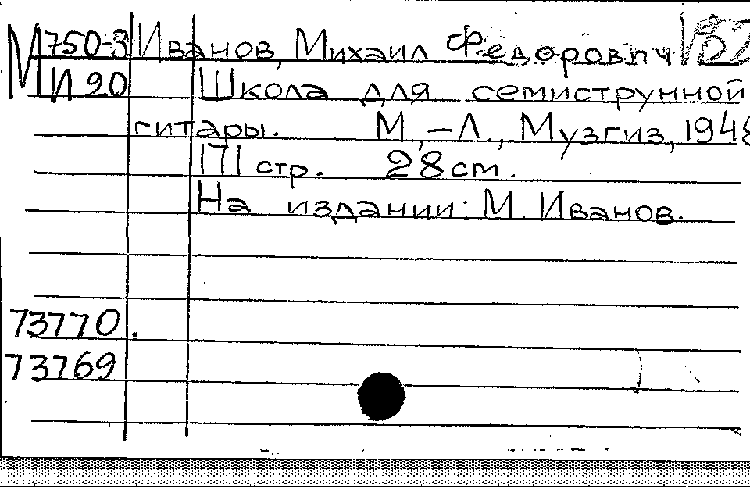 М 750-3 Иванов, Михаил Федорович
И 20 Школа для семиструнной
гитары. М.-Л., Музгиз,
171 стр. 28 cm.
На издании: М. Иванов.
73770.
73769